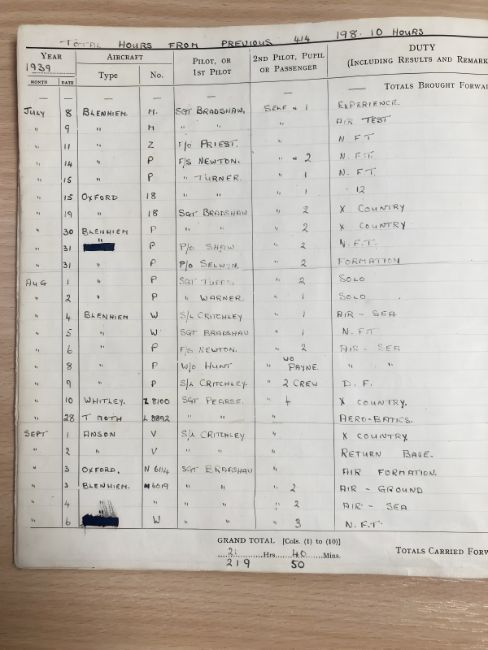 TOTAL HOURS FROM PREVIOUS 414 198.10 HOURS
YEAR AIRCRAFT PILOT, OR 1ST PILOT 2ND PILOT, PUPIL OR PASSENGER DUTY
1939 (INCLUDING RESULTS AND REMARK
MONTH DATE Type No.
— — — — — — TOTALS BROUGHT FORWA
JULY 8 BLENHIEM M. SGT BRADSHAW. SELF + 1 EXPERIENCE.
" 9 " M " " " AIR TEST
" 11 " Z F/O PRIEST. " N.F.T.
" 14 " P F/S NEWTON. " + 2 N.F.T.
" 15 " P " TURNER " 1 N.F.T.
" 15 OXFORD 18 " " " 1 " 12
" 19 " 18 SGT BRADSHAW " 2 X COUNTRY
" 30 BLENHIEM P " " " 2 X COUNTRY
" 31 " P P/O SHAW " 2 N.F.T.
" 31 " P P/O SELWYN. " 2 FORMATION
AUG 1 " P SGT " 2 SOLO
" 2 " P " WARNER. " 1 SOLO
" 4 BLENHIEM W S/L CRITCHLEY " 1 AIR - SEA
" 5 " W SGT BRADSHAW " 1 N.F.T.
" 6 " P F/S NEWTON. " 2 AIR - SEA
" 8 " P W/O HUNT " W/O PAYNE. " "
" 9 " P S/L CRITCHLEY. " 2 CREW D.F.
" 10 WHITLEY. 8100 SGT PEARCE. " 4 X COUNTRY.
" 28 T MOTH L8892 " " " AERO-BATICS.
SEPT 1 ANSON V S/L CRITCHLEY " X COUNTRY
" 2 " V " " " RETURN BASE.
" 3 OXFORD. N 6114 SGT BRADSHAW " AIR FORMATION.
" 3 BLENHIEM. 6019 " " " 2 AIR - GROUND
" 4 " " " " 2 AIR - SEA
" 6 W " " " 3 N.F.T
GRAND TOTAL [Cols. (1) to (10)]
21 Hrs. 40 Mins. TOTALS CARRIED FORW
219 50